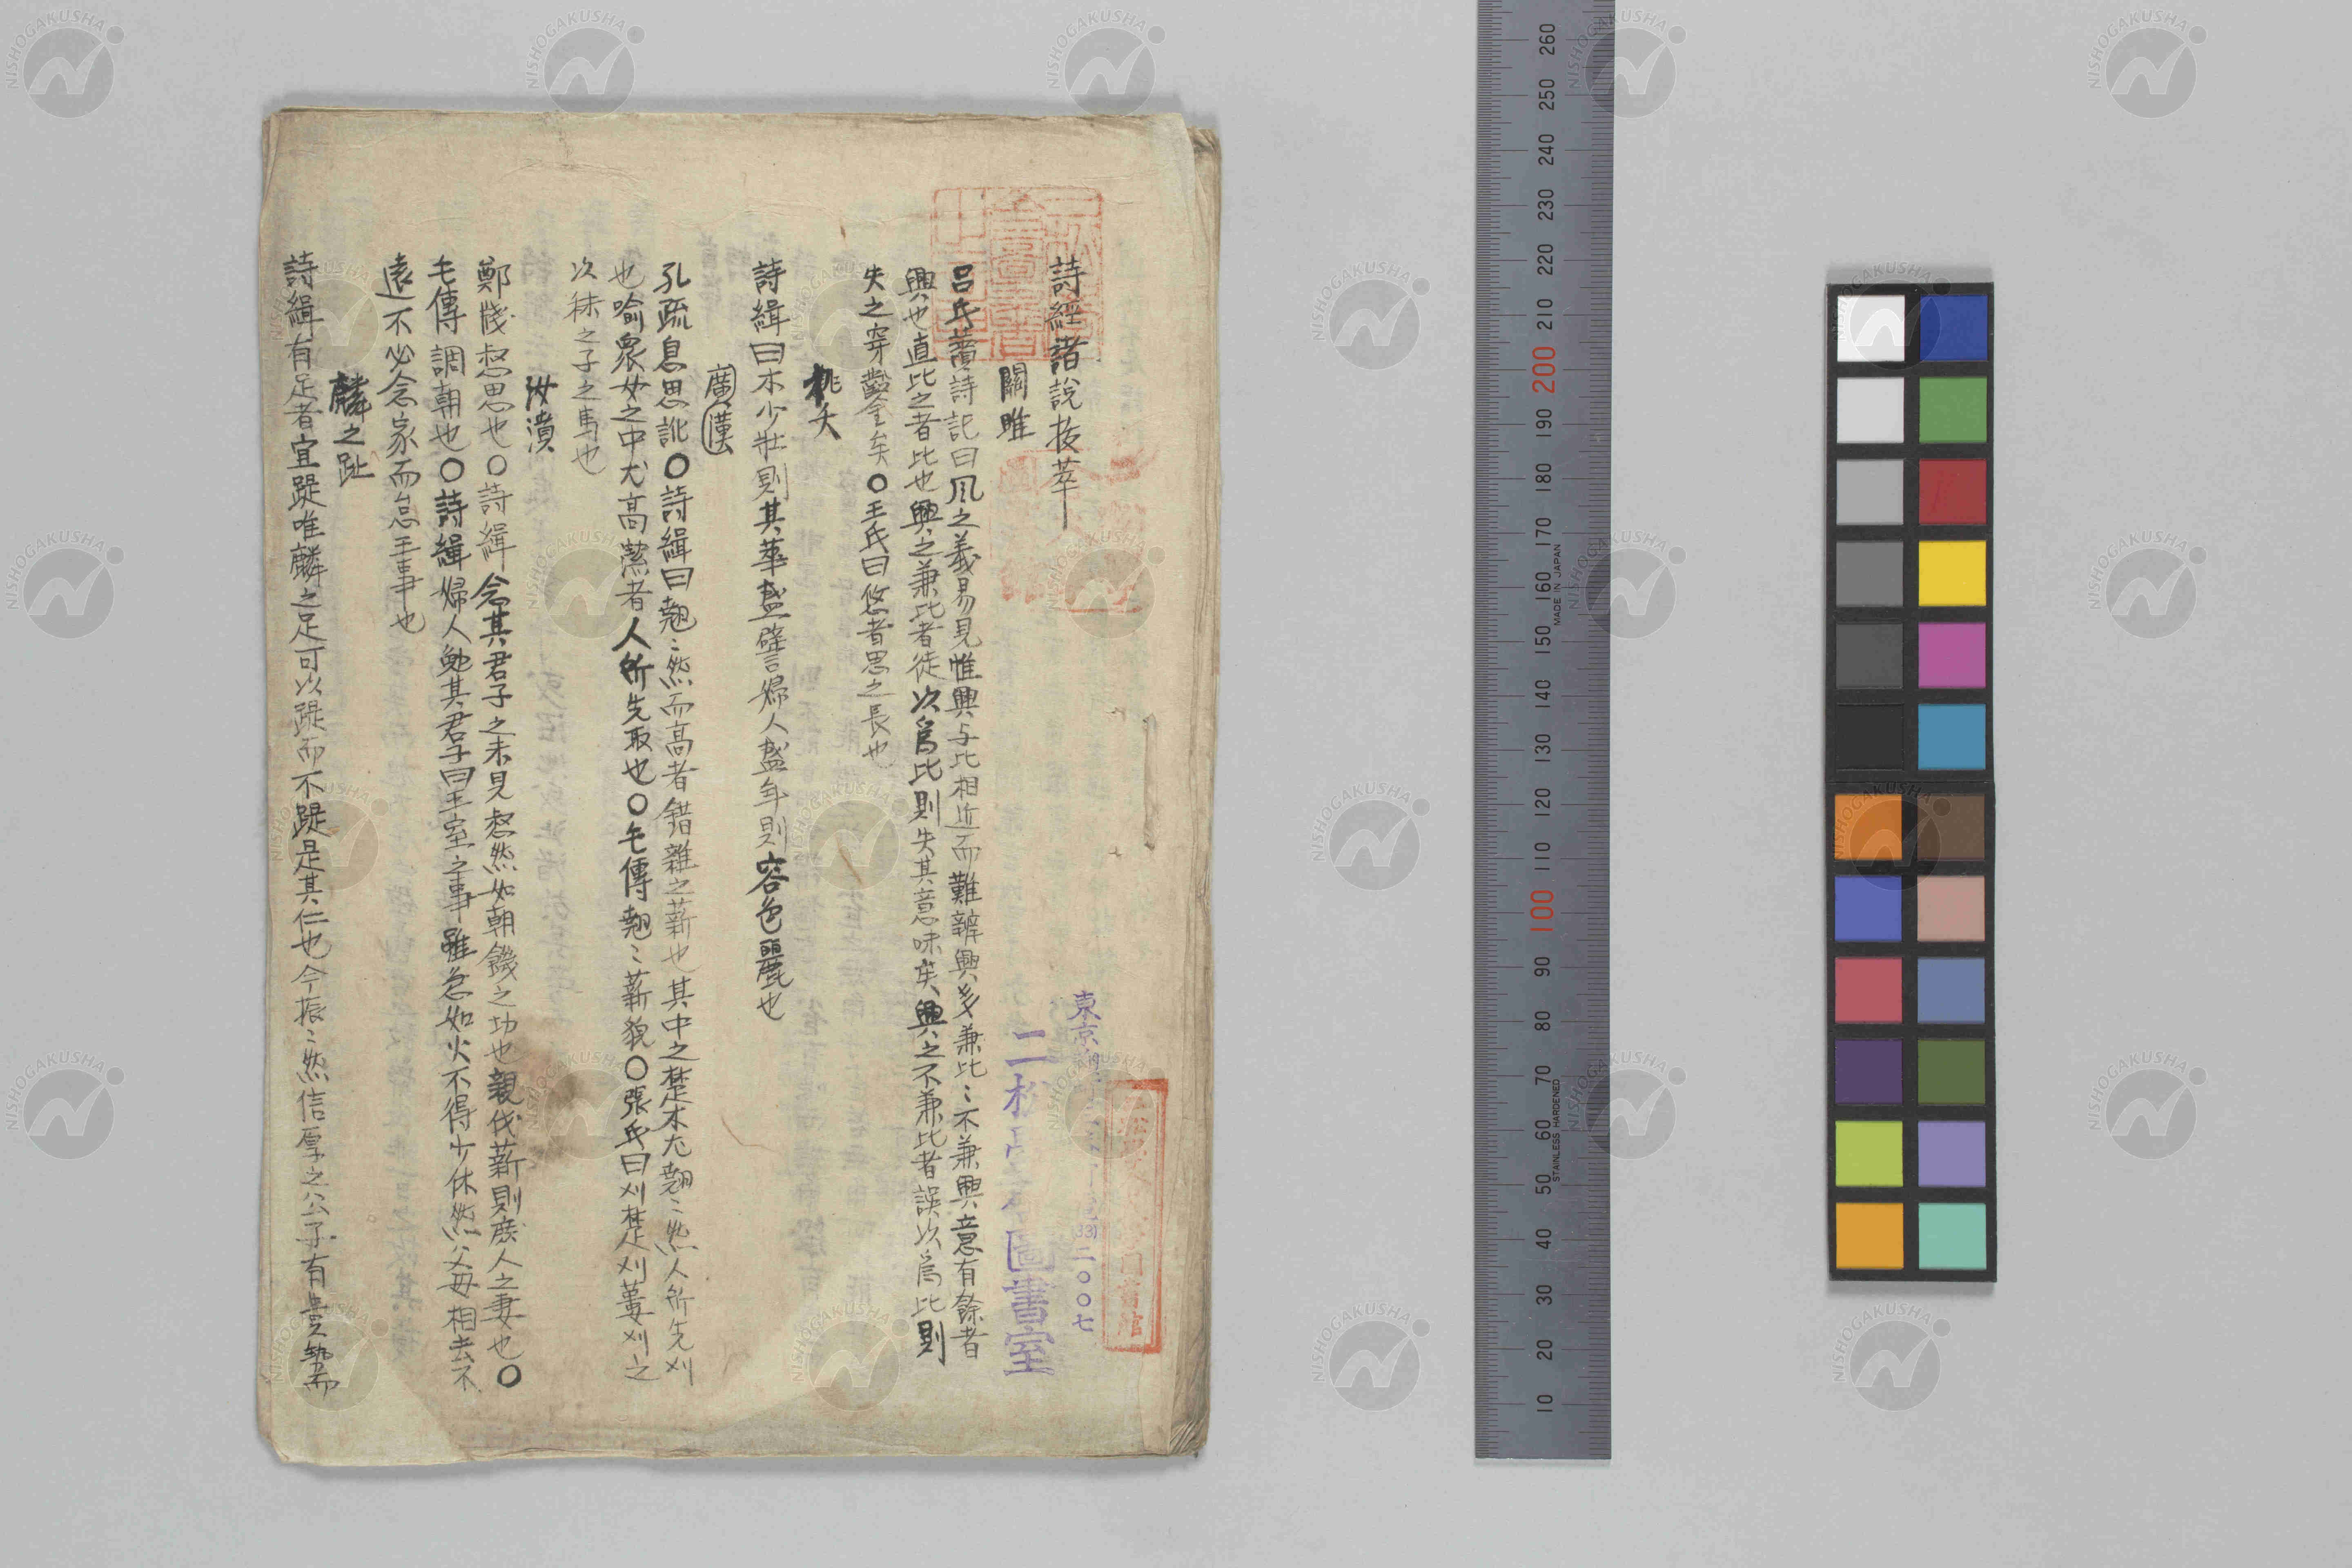 詩經諸說抜萃
關雎
呂氏讀詩記曰風之義易見惟興与比相近而難辨興多兼比〻不兼興意有餘者
興也直比之者比也興之兼比者徒以為比則失其意味矣興之不兼比者誤以為比則
失之穿鑿矣〇王氏曰悠者思之長也
桃夭
詩緝曰木少壯則其華盛譬言婦人盛年則容色麗也
廣漢
孔疏息思訛〇詩緝曰翹〻然而高者錯雜之薪也其中之楚木尤翹〻然人所先刈
也喻衆女之中尤高潔者人所先取也〇毛傳翹〻薪貌〇張氏曰刈楚刈蔞刈之
以秣之子之馬也
汝濆
鄭牋惄思也〇詩緝念其君子之未見惄然如朝饑之功也親伐薪則庶人之妻也〇
毛傳調朝也〇詩緝婦人勉其君子曰王室之事雖急如火不得少休然父母相去不
遠不必念家而怠王事也
麟之趾
詩緝有足者宜踶唯麟之足可以踶而不踶是其仁也今振〻然信厚之公子有貴勢而
東京
二〇〇七
圖書室
NISHOGAKUSHA
260
250
240
230
220
210
200
190
180
170
160
150
140
130
120
110
100
90
80
70
60
50
40
30
20
10
MADE IN JAPAN
STAINLESS HARDENED